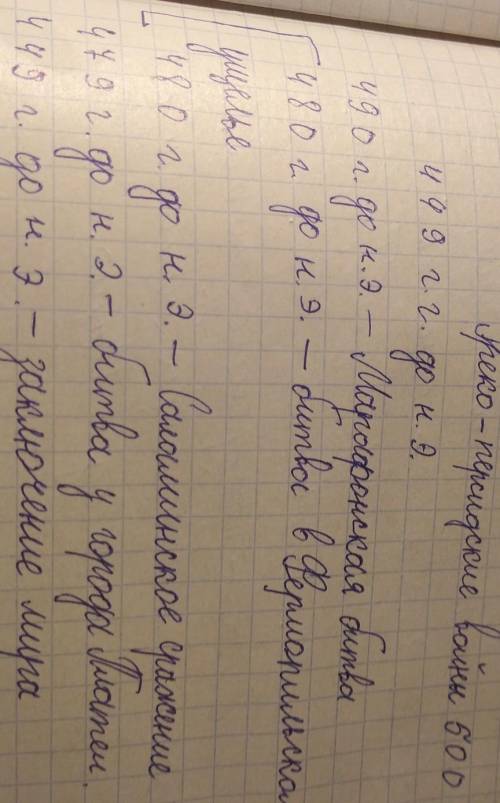 Греко-персидские войны 500
449 г.г. до н.э.
490 г. до н.э. — Марафонская битва
480 г. до н.э. — битва в Фермопильско
ущелье
480 г. до н.э. — Саламинское сражение
479 г. до н.э. — битва у города Платеи.
449 г. до н.э. — заключение мира